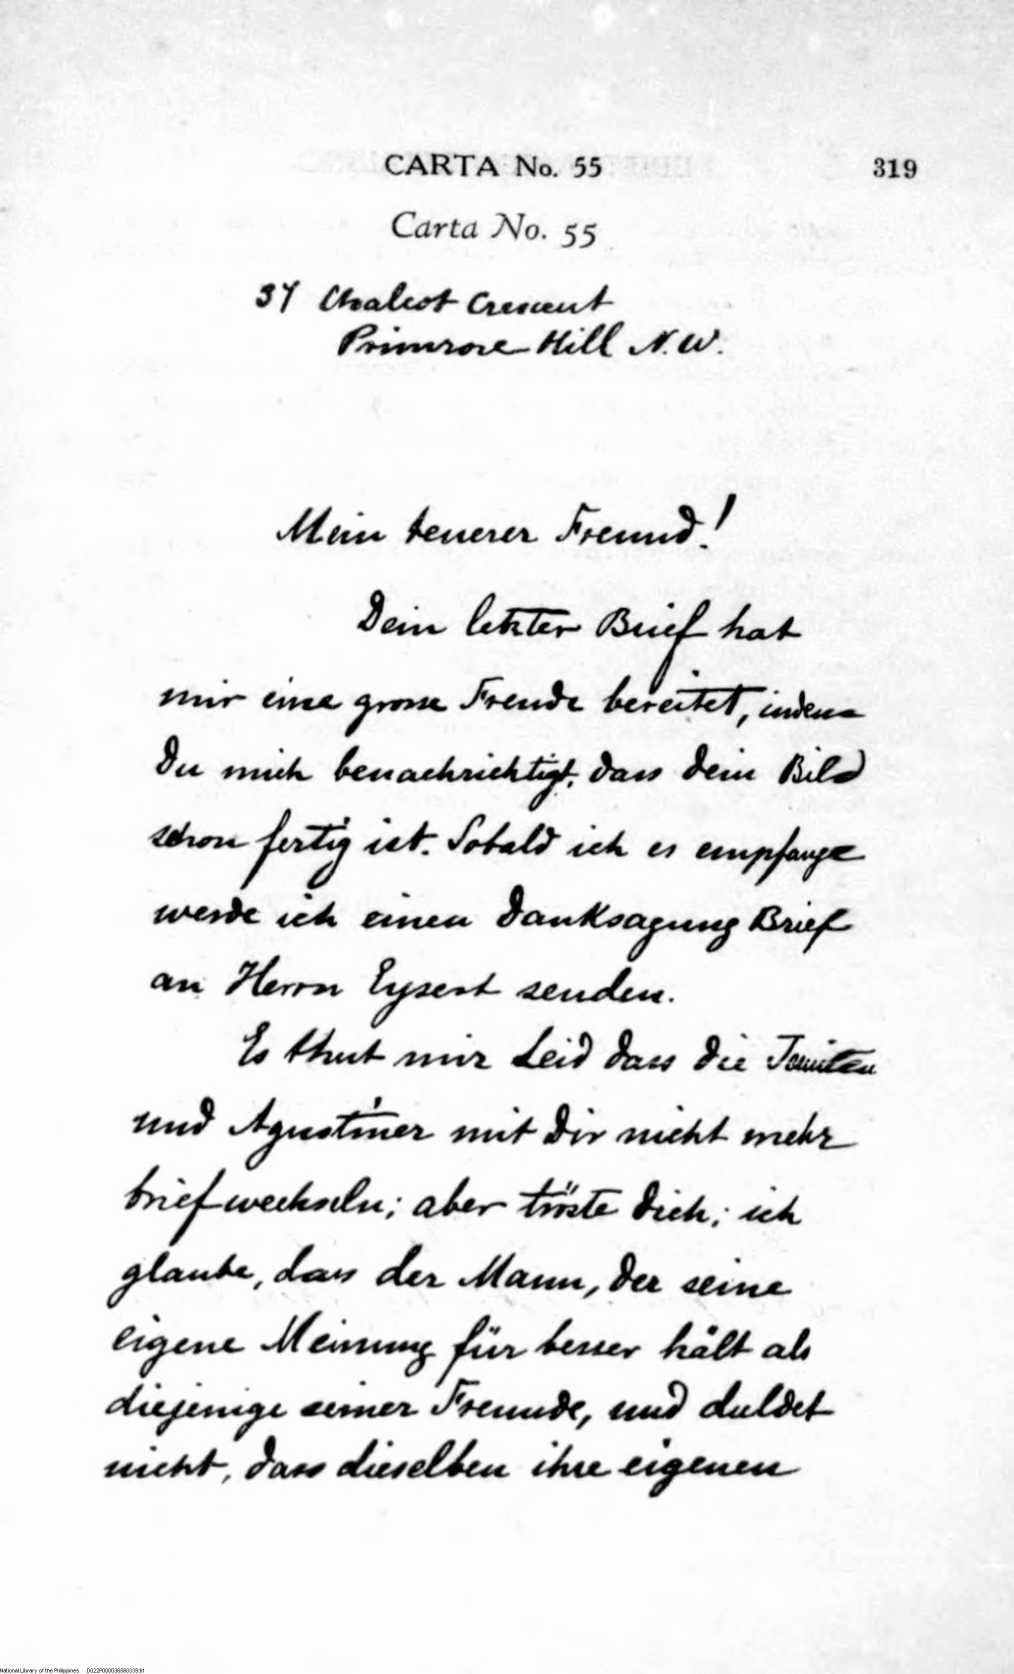 CARTA No. 55 319
Carta No. 55
37 Chalcot Crescent
Primrose Hill N.W.
Mein teuerer Freund!
Dein letzter Brief hat
mir eine grosse Freude bereitet, indem
Du mich benachrichtigt, dass dein Bild
schon fertig ist. Sobald ich es empfange
werde ich einen Danksagung Brief
an Herrn Eysert senden.
Es thut mir Leid dass die Jesuiten
und Agustiner mit Dir nicht mehr
briefwechseln; aber tröste Dich; ich
glaube, dass der Mann, der seine
eigene Meinung für besser hält als
diejenige seiner Freunde, und duldet
nicht, dass dieselben ihre eigenen
National Library of the Philippines